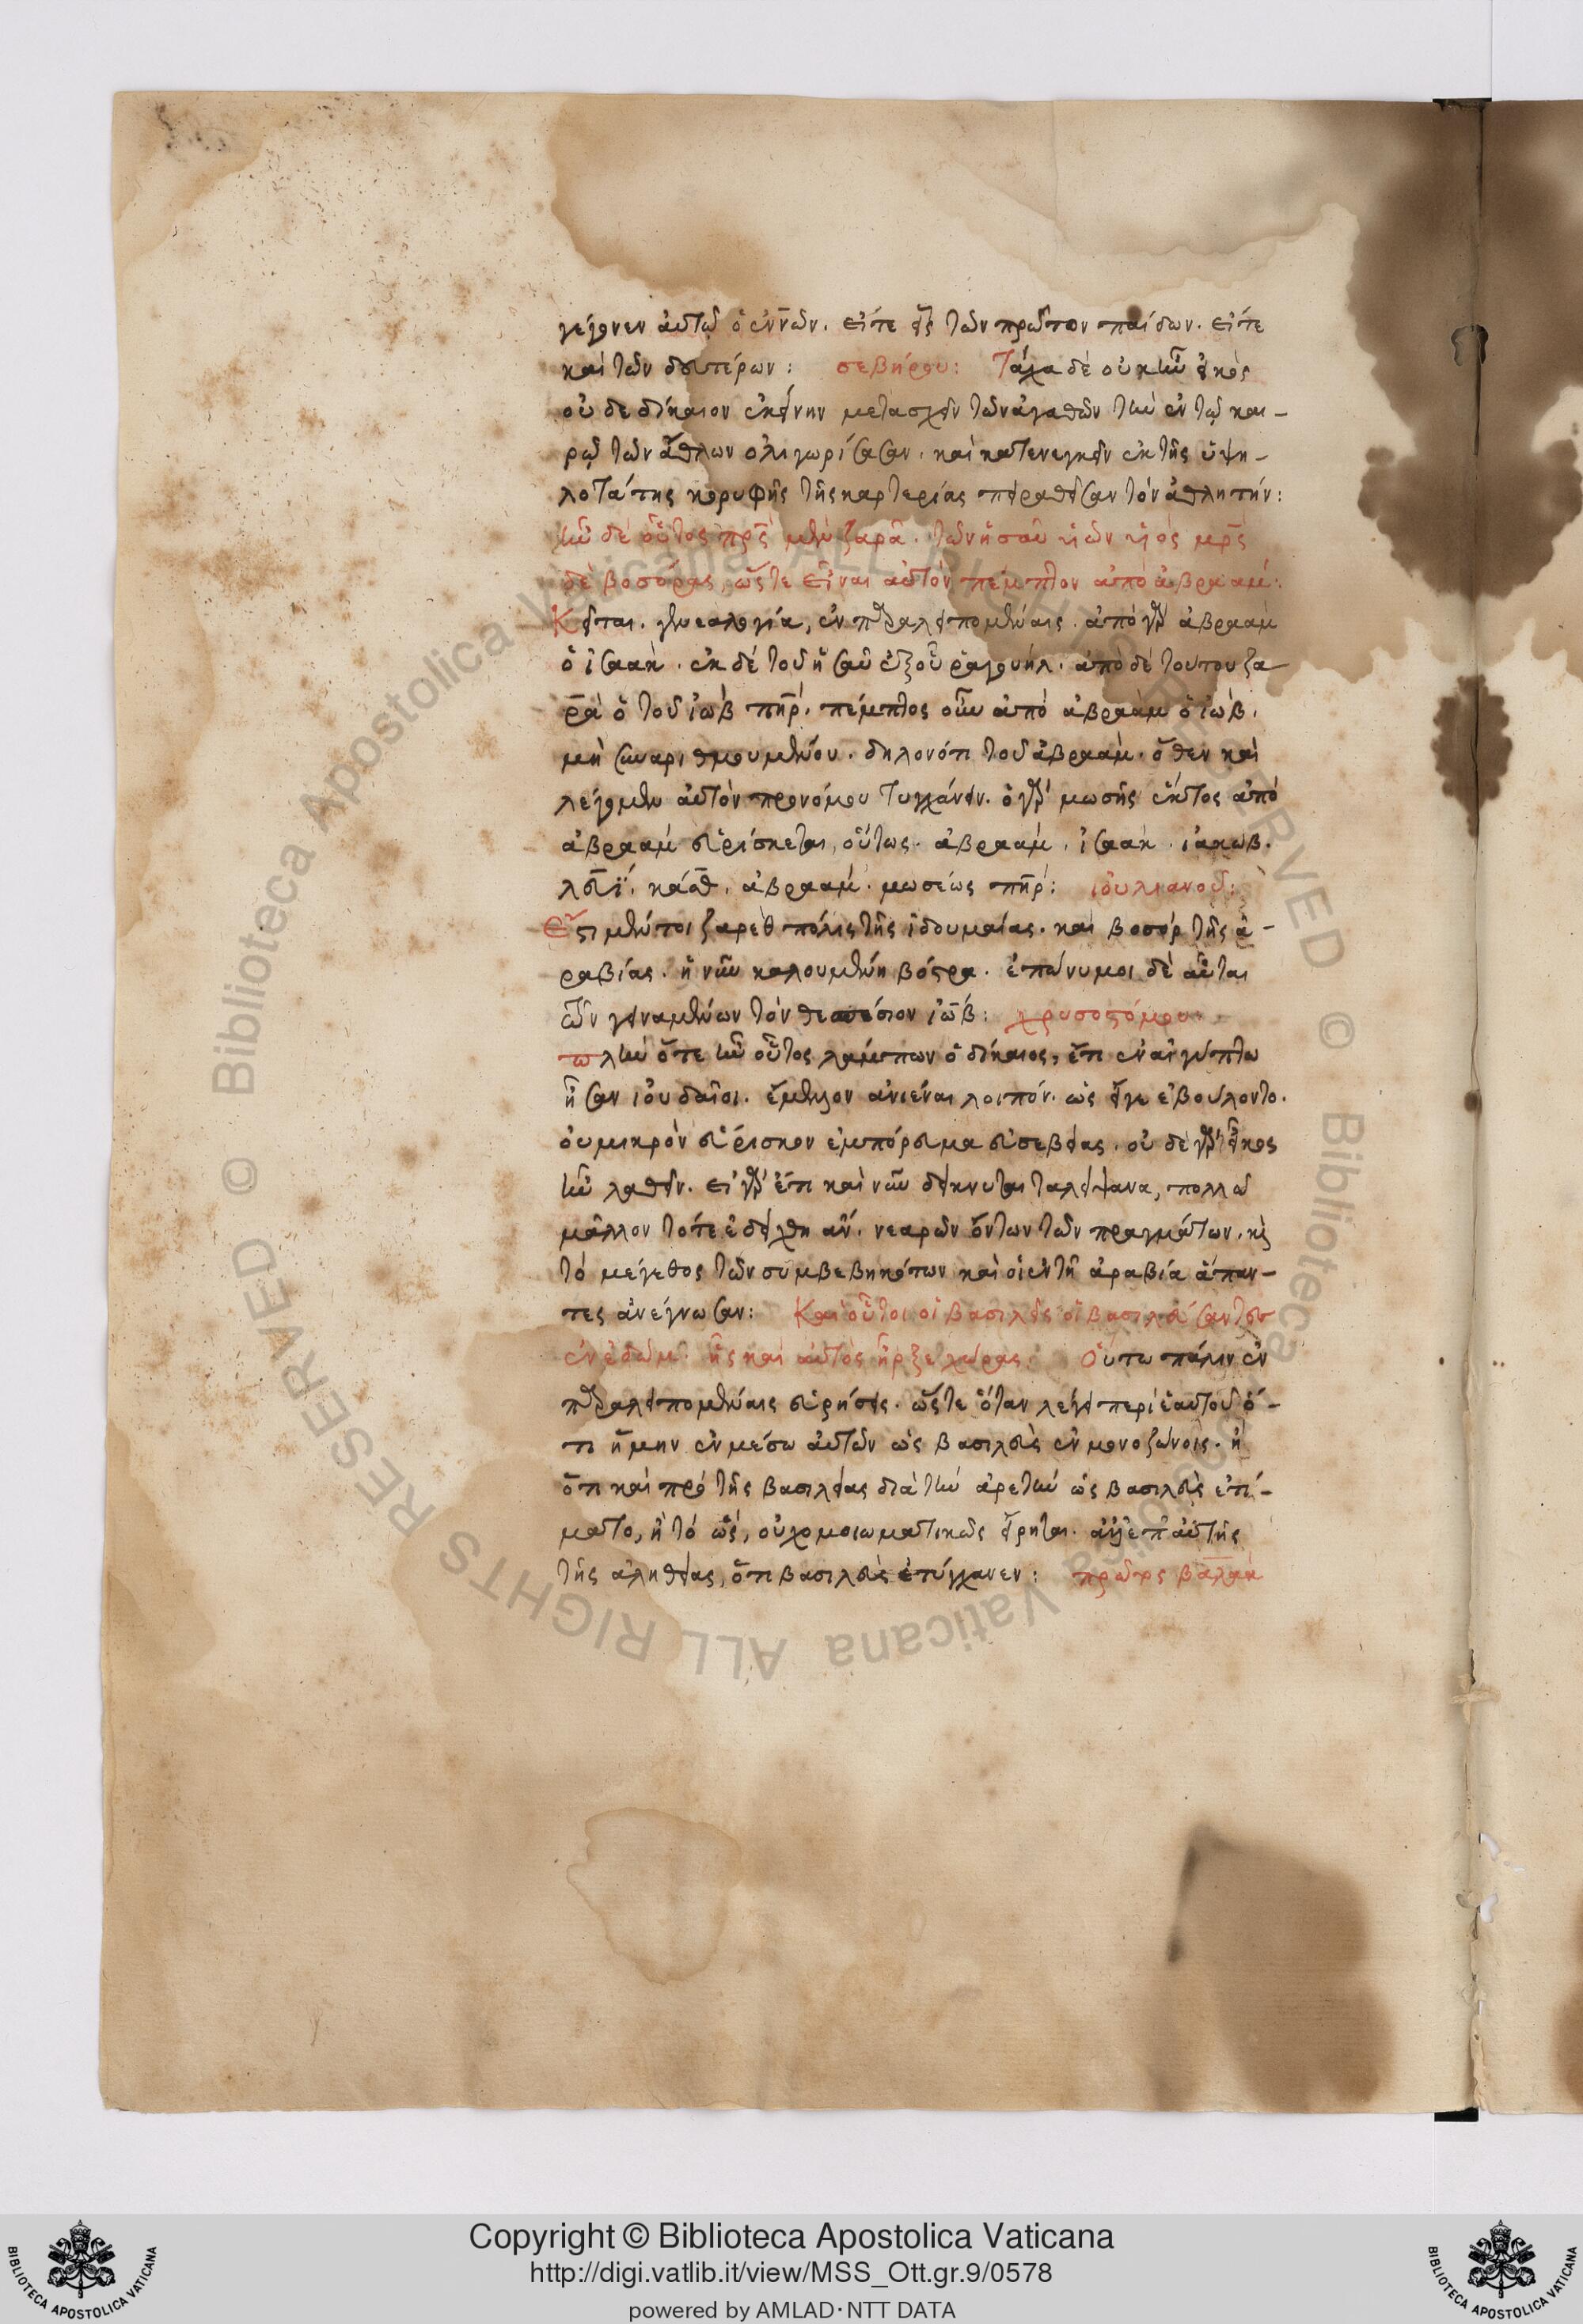 γέγονεν αὐτῷ ὁ ἐννῶν. εἴτε εἷς τῶν πρώτων παίδων. εἴτε
καὶ τῶν δευτέρων: σεβήρου: Τάχα δὲ οὐκ ἦν εἰκὸς
οὐδὲ δίκαιον ἐκείνην μετασχεῖν τῶν ἀγαθῶν τὴν ἐν τῷ και-
ρῷ τῶν ἄθλων ὀλιγωρήσασαν. καὶ κατενεγκεῖν ἐκ τῆς ὑψη-
λοτάτης κορυφῆς τῆς καρτερίας πειραθεῖσαν τὸν ἀθλητήν:
ἦν δὲ οὗτος πρς μὲν ζαρὰ. τῶν ἡσαῦ υἱῶν υἱὸς μρς
δὲ βοσόρας, ὥστε εἶναι αὐτὸν πέμπτον ἀπὸ ἀβραάμ:
Κεῖται. γενεαλογία, ἐν παραλειπομέναις. ἀπὸ γὰρ ἀβραὰμ
ὁ ἰσαάκ. ἐκ δὲ τοῦ ἡσαῦ ἐξ οὗ ῥαγουήλ. ἀπὸ δὲ τούτου ζα
ρὰ ὁ τοῦ ἰὼβ πηρ. πέμπτος οὖν ἀπὸ ἀβραὰμ ὁ ἰὼβ.
μὴ συναριθμουμένου. δηλονότι τοῦ ἀβραάμ. ὅθεν καὶ
λέγομεν αὐτὸν προνόμου τυγχάνειν. ὁ γὰρ μωσῆς ἕκτος ἀπὸ
ἀβραὰμ εὑρίσκεται, οὕτως. ἀβραάμ. ἰσαάκ. ἰακώβ.
λευΐ. καάθ. ἀβραάμ. μωσέως πηρ: ἰουλιανοῦ:
Ἔστι μέντοι ζαρὲθ πόλις τῆς ἰδουμαίας. καὶ βοσὸρ τῆς ἀ-
ραβίας. ἡ νῦν καλουμένη βόστρα. ἐπώνυμοι δὲ αὗται
τῶν γειναμένων τὸν θεσπέσιον ἰώβ: χρυσοστόμου
πλὴν ὅτε ἦν οὗτος λάμπων ὁ δίκαιος, ἔτι ἐν αἰγύπτω
ἦσαν ἰουδαῖοι. ἔμελλον ἀνιέναι λοιπόν. ὡς εἴγε ἐβούλοντο.
οὐ μικρὸν εὕρισκον ἐμπόρευμα εὐσεβείας. οὐδὲ γὰρ εἰκὸς
ἦν λαθεῖν. εἰ γὰρ ἔτι καὶ νῦν δείκνυται τὰ λείψανα, πολλῶ
μᾶλλον τότε ἐδείχθη ἄν. νεαρῶν ὄντων τῶν πραγμάτων. κς
τὸ μέγεθος τῶν συμβεβηκότων καὶ οἱ ἐν τῆ ἀραβία ἅπαν-
τες ἀνέγνωσαν: Καὶ οὗτοι οἱ βασιλεῖς οἱ βασιλεύσαντες
ἐν ἐδώμ. ἧς καὶ αὐτὸς ἦρξε χώρας: Οὕτω πάλιν ἐν
παραλειπομέναις εὑρήσεις. ὥστε ὅταν λέγει περὶ ἑαυτοῦ ὅ-
τι ἤμην ἐν μέσω αὐτῶν ὡς βασιλεὺς ἐν μονοζώνοις. ἢ
ὅτι καὶ πρὸ τῆς βασιλείας διὰ τὴν ἀρετὴν ὡς βασιλεὺς ἐτί-
μαστο, ἢ τὸ ὡς, οὐχ ὁμοιωματικῶς εἴρηται. ἀλλ' ἐπ' αὐτῆς
τῆς ἀληθείας, ὅτι βασιλεὺς ἐτύγχανεν: πρῶτος βαλὰκ
Copyright © Biblioteca Apostolica Vaticana
http://digi.vatlib.it/view/MSS_Ott.gr.9/0578
powered by AMLAD·NTT DATA
BIBLIOTECA APOSTOLICA VATICANA
BIBLIOTECA APOSTOLICA VATICANA
© Biblioteca Apostolica Vaticana ALL RIGHTS RESERVED
© Biblioteca Apostolica Vaticana ALL RIGHTS RESERVED